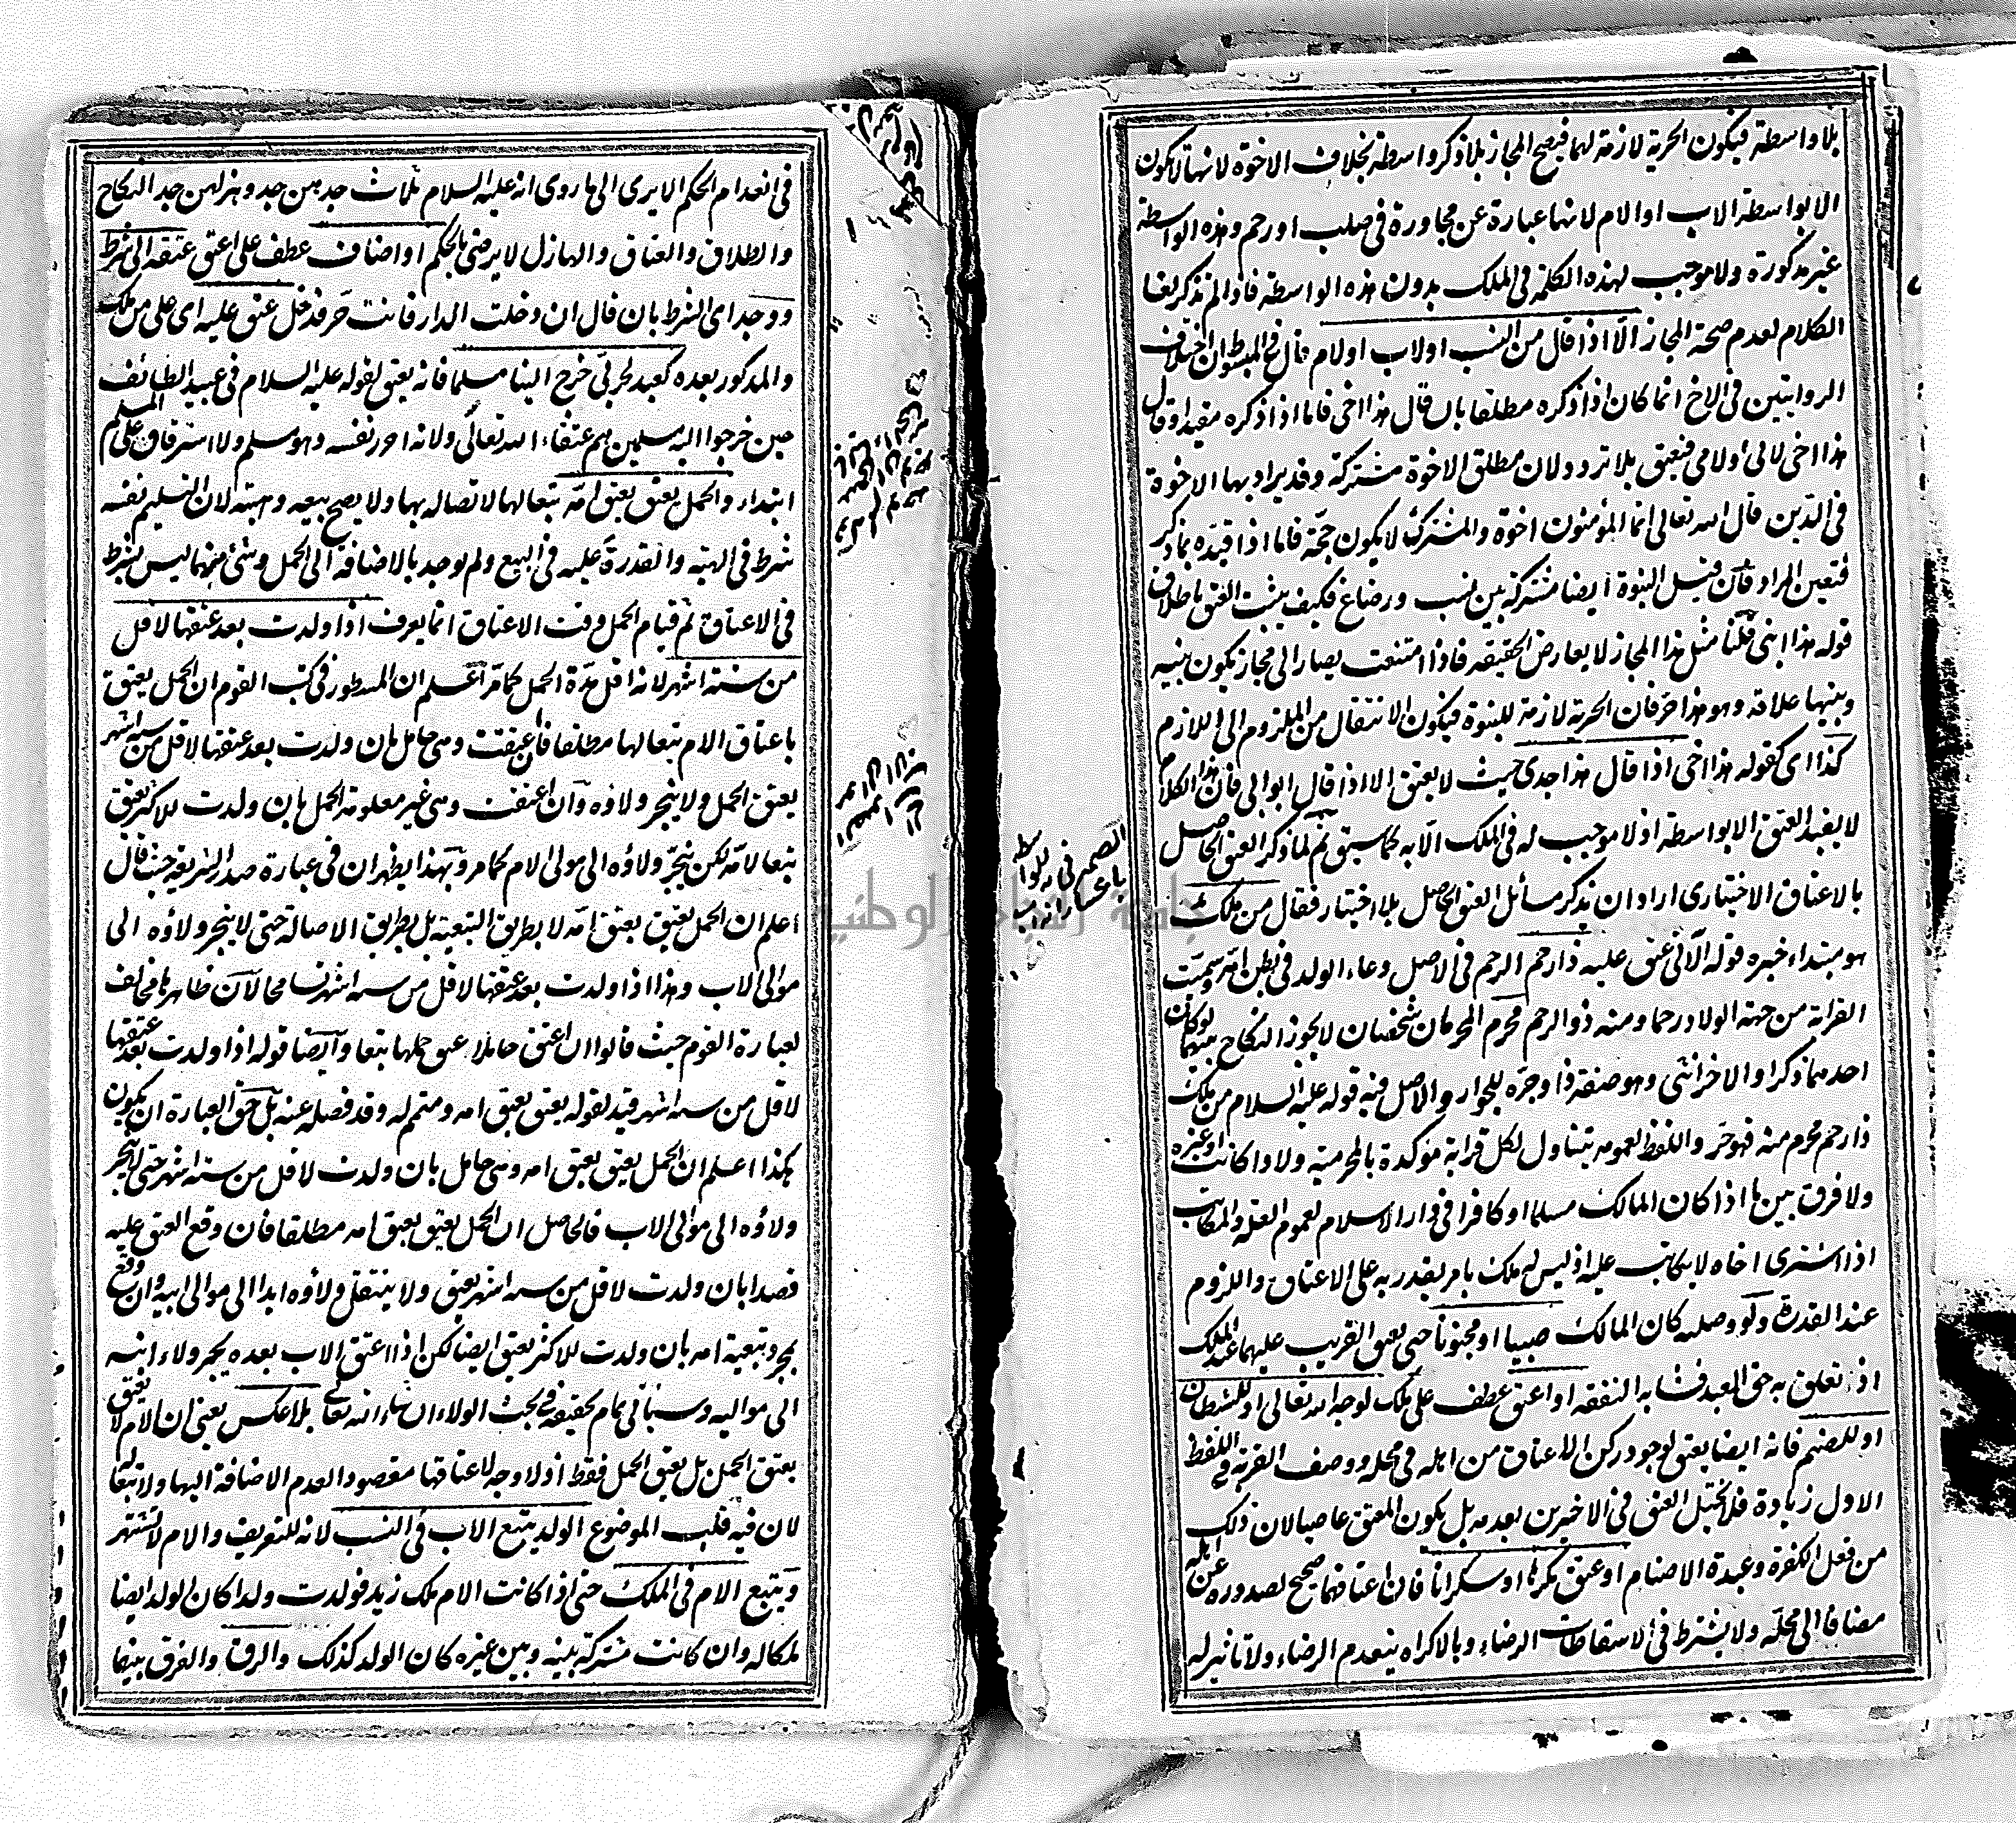 بلا واسطة فيكون الحرية لازمة لهما فيصح المجاز بلا ذكر واسطة بخلاف الاخوة لانها لا يكون
الا بواسطة الاب او الام لانها عبارة عن مجاورة في صلب او رحم وهذه الواسطة
غير مذكورة ولا موجب لهذه الكلمة في الملك بدون هذه الواسطة فاذا لم تذكر لغا
الكلام لعدم صحة المجاز الا اذا قال من النسب او لاب او لام قال في المبسوط ان اختلاف
الروايتين في الاخ انما كان اذا ذكره مطلقا بان قال هذا اخي فاما اذا ذكره مقيدا وقال
هذا اخي لابي او لامي فيعتق بلا تردد ولان مطلق الاخوة مشتركة وقد يراد بها الاخوة
في الدين قال الله تعالى انما المؤمنون اخوة والمشترك لا يكون حجة فاما اذا قيده بما ذكر
فتعين المراد فان قيل البنوة ايضا مشتركة بين نسب ورضاع فكيف يثبت العتق باطلاق
قوله هذا ابني قلنا مثل هذا المجاز لا يعارض الحقيقة فاذا امتنعت يصار الى مجاز يكون بينه
وبينها علاقة وهو هذا حر فان الحرية لازمة للبنوة فيكون الانتقال من الملزوم الى اللازم
كذا اي كقوله هذا اخي اذا قال هذا جدي حيث لا يعتق الا اذا قال ابو ابي فان هذا الكلام
لا يفيد العتق الا بواسطة اذ لا موجب له في الملك الا به كما سبق ثم لما ذكر العتق الحاصل
بالاعتاق الاختياري اراد ان يذكر مسائل العتق الحاصل بلا اختيار فقال من ملك
هو مبتداء خبره قوله الآتي عتق عليه ذا رحم الرحم في الاصل وعاء الولد في بطن امه وسميت
القرابة من جهة الولاد رحما ومنه ذو الرحم محرم المحرمان شخصان لا يجوز النكاح بينهما لو كان
احدهما ذكرا والاخر انثى وهو صفة ذا وجره للجوار والاصل فيه قوله عليه السلام من ملك
ذا رحم محرم منه فهو حر واللفظ لعمومه يتناول لكل قرابة مؤكدة بالمحرمية ولادا كانت او غيره
ولا فرق بين ما اذا كان المالك مسلما او كافرا في دار الاسلام لعموم العلة والمكاتب
اذا اشترى اخاه لا يتكاتب عليه اذ ليس له ملك تام يقدر به على الاعتاق واللزوم
عند القدرة ولو وصلية كان المالك صبيا او مجنونا حتى يعتق القريب عليهما عند الملك
اذ تعلق به حق العبد فشابه النفقة او اعتق عطف على ملك لوجه الله تعالى او للشيطان
او للصنم فانه ايضا يعتق لوجود ركن الاعتاق من اهله في محله ووصف القربة في اللفظ
الاول زيادة فلا يختل العتق في الاخيرين بعدمه بل يكون المعتق عاصيا لان ذلك
من فعل الكفرة وعبدة الاصنام او عتق مكرها او سكرانا فان اعتاقهما صحيح لصدوره عن اهله
مضافا الى محله ولا يشترط في الاسقاطات الرضاء وبالاكراه ينعدم الرضاء ولا تاثير له
في انعدام الحكم الا يرى الى ما روي انه عليه السلام ثلاث جدهن جد وهزلهن جد النكاح
والطلاق والعتاق والهازل لا يرضى بالحكم او اضاف عطف على اعتق عتقه الى شرط
ووجد اي الشرط بان قال ان دخلت الدار فانت حر فدخل عتق عليه اي على من ملك
والمذكور بعده كعبد لحربي خرج الينا مسلما فانه يعتق لقوله عليه السلام في عبيد الطائف
حين خرجوا اليه مسلمين هم عتقاء الله تعالى ولانه احرز نفسه وهو مسلم ولا استرقاق على المسلم
ابتداء والحمل يعتق بعتق امه تبعا لها لاتصاله بها ولا يصح بيعه وهبته لان التسليم نفسه
شرط في الهبة والقدرة عليه في البيع ولم يوجد بالاضافة الى الحمل وشئ منهما ليس بشرط
في الاعتاق ثم قيام الحمل وقت الاعتاق انما يعرف اذا ولدت بعد عتقها لاقل
من ستة اشهر لانه اقل مدة الحمل كما مر اعلم ان المسطور في كتب القوم ان الحمل يعتق
باعتاق الام تبعا لها مطلقا فان عتقت وهي حامل بان ولدت بعد عتقها لاقل من ستة اشهر
يعتق الحمل ولا ينجر ولاؤه وان اعتقت وهي غير معلومة الحمل بان ولدت للاكثر يعتق
تبعا لامه لكن ينجر ولاؤه الى مولى الام كما مر وبهذا يظهر ان في عبارة صدر الشريعة حيث قال
اعلم ان الحمل يعتق بعتق امه لا بطريق التبعية بل بطريق الاصالة حتى لا ينجر ولاؤه الى
موالي الاب وهذا اذا ولدت بعد عتقها لاقل من ستة اشهر تسامحا لان ظاهرها مخالف
لعبارة القوم حيث قالوا ان اعتق حاملا عتق حملها تبعا وايضا قوله اذا ولدت بعد عتقها
لاقل من ستة اشهر قيد لقوله يعتق بعتق امه ومتمم له وقد فصله عنه بل حق العبارة ان يكون
هكذا اعلم ان الحمل يعتق بعتق امه وهي حامل بان ولدت لاقل من ستة اشهر حتى لا ينجر
ولاؤه الى موالي الاب فالحاصل ان الحمل يعتق بعتق امه مطلقا فان وقع العتق عليه
قصدا بان ولدت لاقل من ستة اشهر يعتق ولا ينتقل ولاؤه ابدا الى موالي ابيه وان وقع
بمجرد تبعية امه بان ولدت للاكثر يعتق ايضا لكن اذا اعتق الاب بعده يجر ولاء ابنه
الى مواليه وسيأتي تمام تحقيقه في بحث الولاء ان شاء الله تعالى بلا عكس يعني ان الام لا تعتق
بعتق الحمل بل يعتق الحمل فقط اذ لا وجه لاعتاقها مقصودا لعدم الاضافة اليها ولا تبعا له
لان فيه قلب الموضوع الولد يتبع الاب في النسب لانه للتعريف والام لا تشتهر
ويتبع الام في الملك حتى اذا كانت الام ملك زيد فولدت ولدا كان الولد ايضا
ملكا له وان كانت مشتركة بينه وبين غيره كان الولد كذلك والرق والفرق بينهما